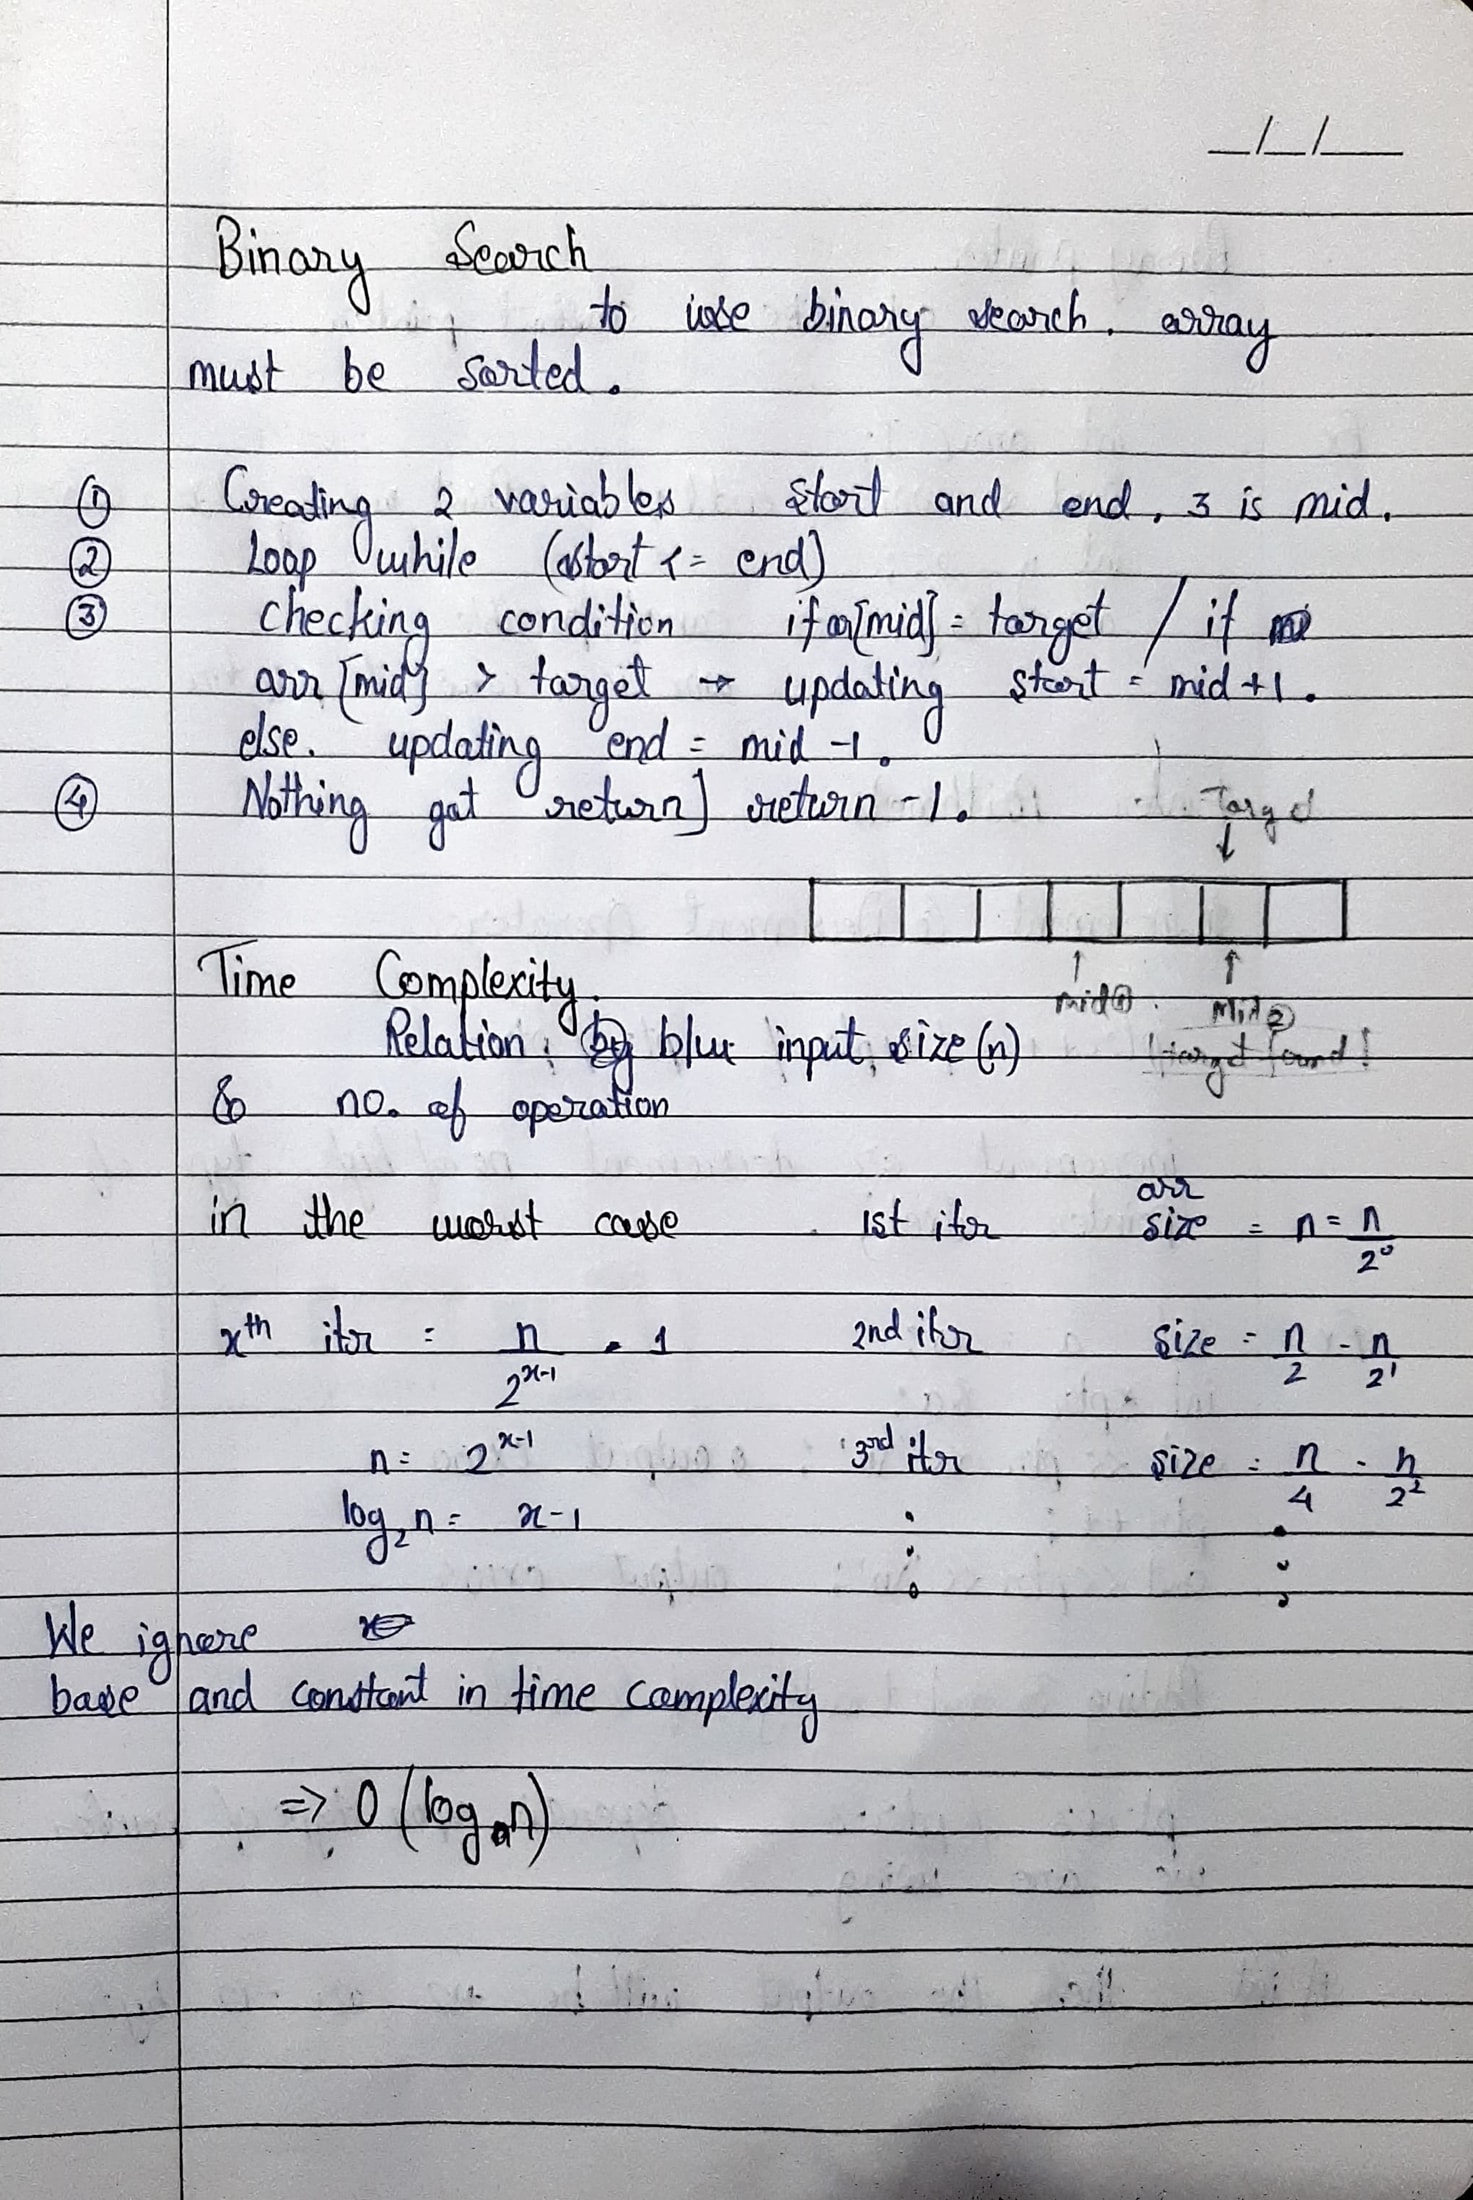 _/_/__
Binary Search
to use binary search. array
must be sorted.
① Creating 2 variables start and end, 3 is mid.
② Loop while (start <= end)
③ checking condition if arr[mid] = target / if
arr [mid] > target → updating start = mid +1.
else. updating end = mid -1.
④ Nothing got return] return -1.
Target
↓
↑ ↑
mid① mid②
target found!
Time Complexity.
Relation : b/w input size (n)
& no. of operation
arr
in the worst case 1st itr size = n = n/2⁰
xᵗʰ itr = n/2ˣ⁻¹ = 1 2nd itr size = n/2 = n/2¹
n = 2ˣ⁻¹ 3rd itr size = n/4 = n/2²
log₂n = x-1
We ignore
base and constant in time complexity
=> O (log n)